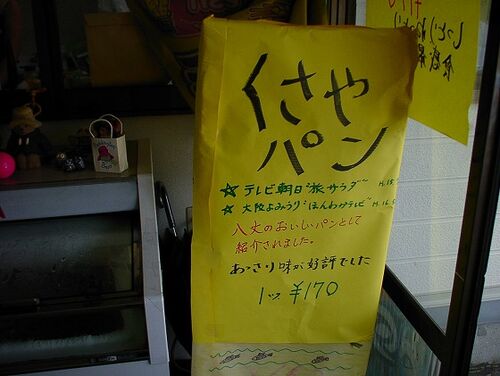 くさや
パン
☆ テレビ朝日"旅サラダ" H.15
☆ 大阪よみうり"ほんわかテレビ" H.16.5
八丈のおいしいパンとして
紹介されました。
あっさり味が好評でした
1ツ ¥170
しっとり